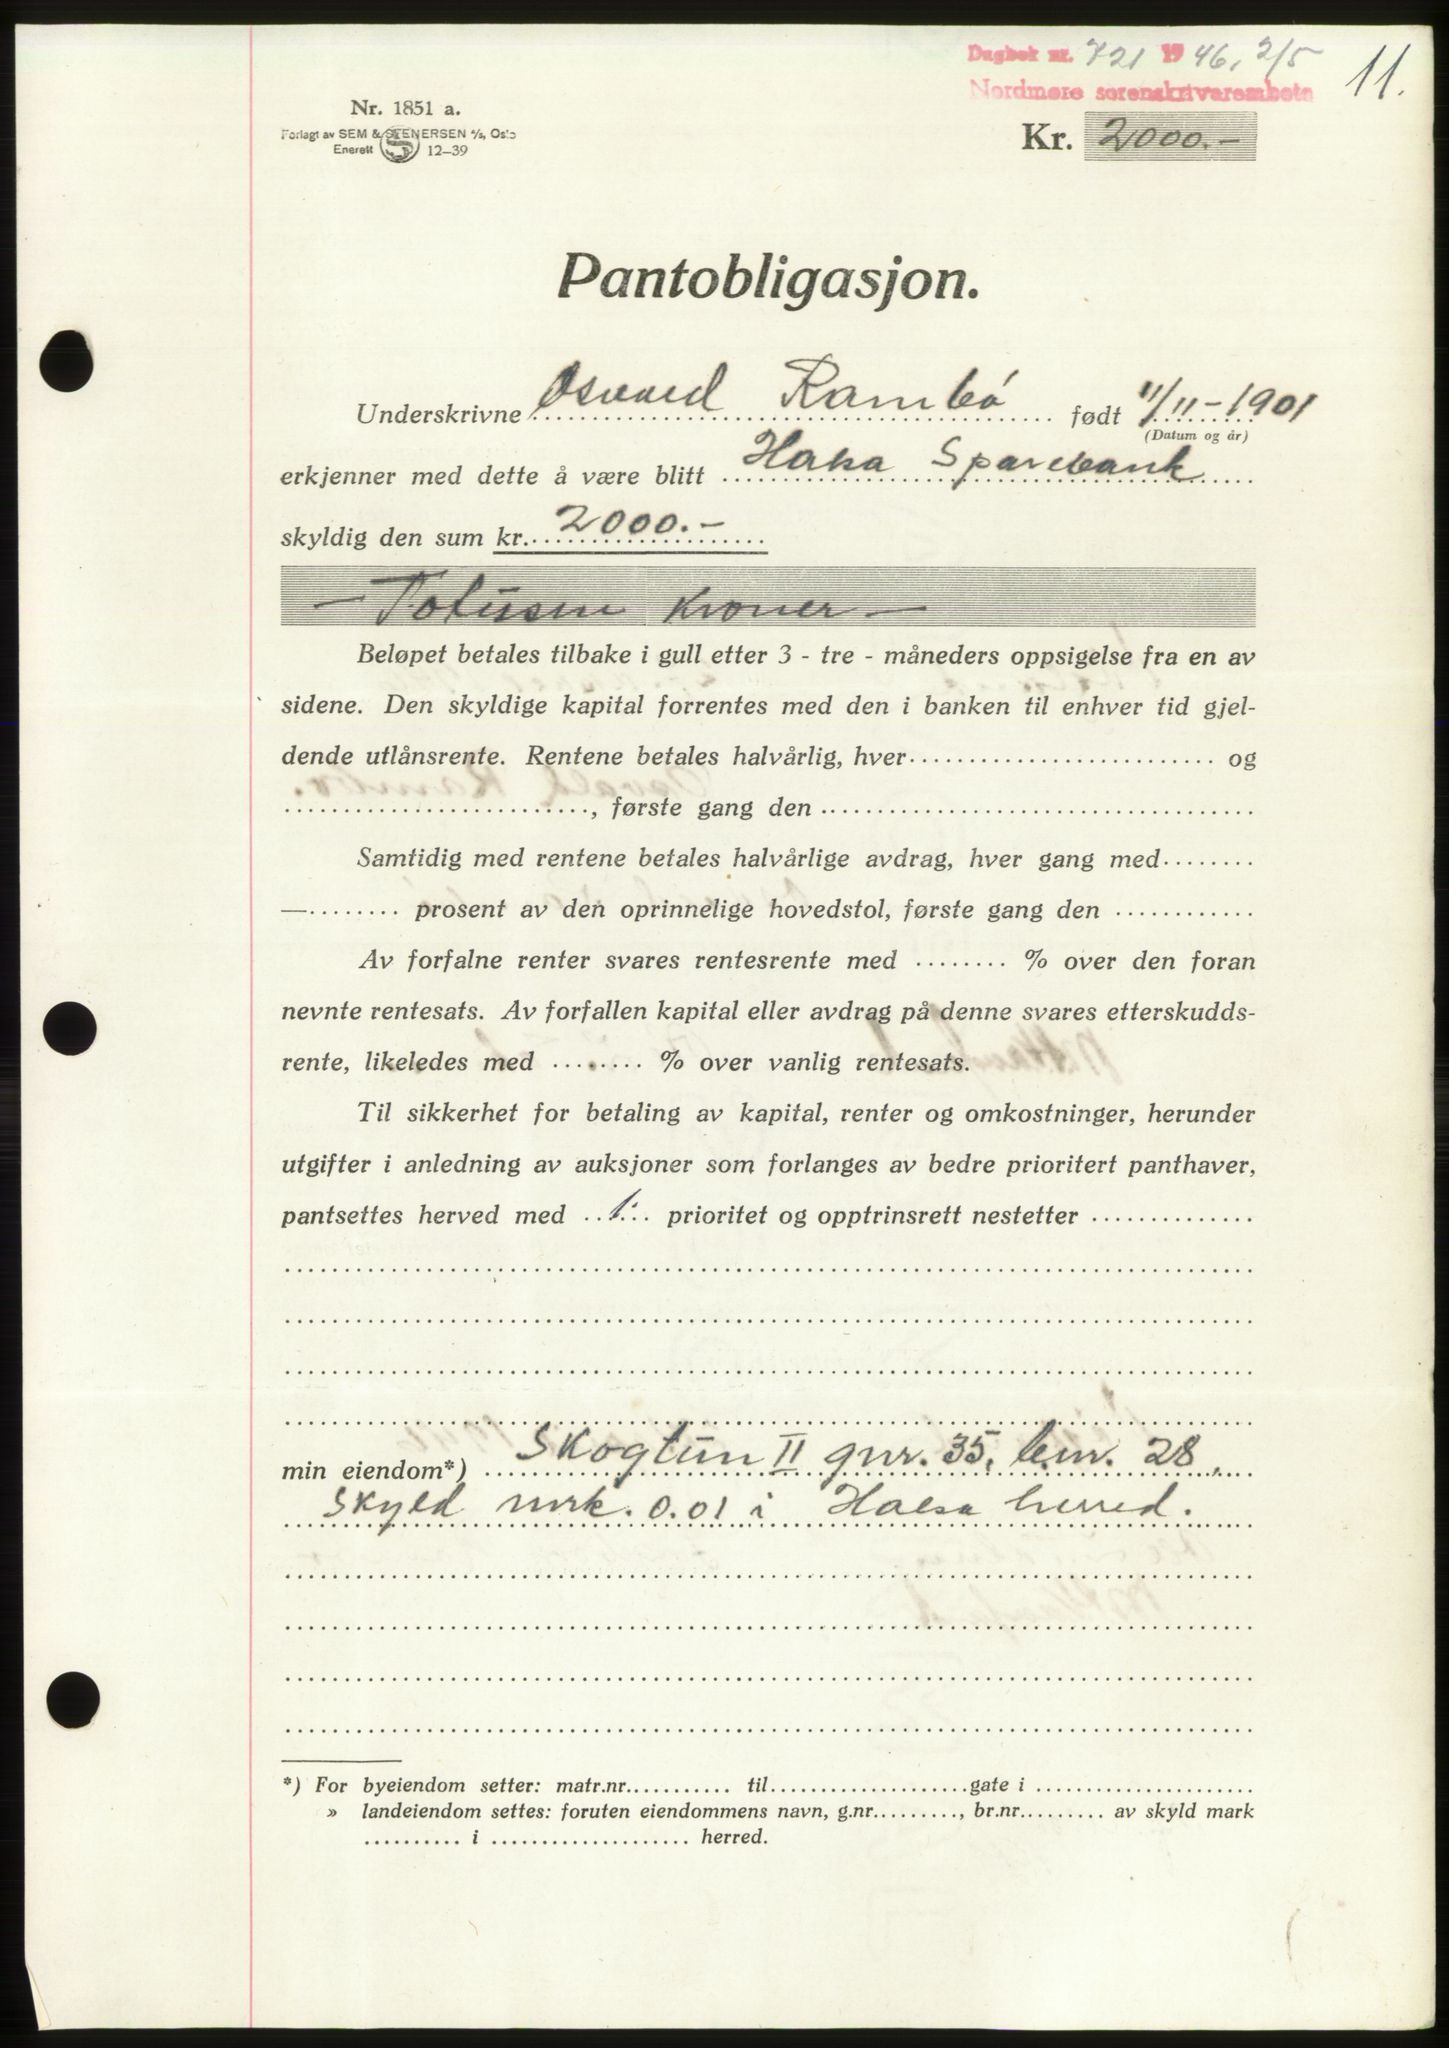 Dagbok nr. 721 1946, 2/5
Nordmøre sorenskrivarembete
11.
Nr. 1851 a.
Forlagt av SEM & STENERSEN A/S, Oslo
Enerett S 12–39
Kr. 2000.-
Pantobligasjon.
Underskrivne Osvald Rambø født 11/11-1901
(Datum og år)
erkjenner med dette å være blitt Halsa Sparebank
skyldig den sum kr. 2000.-
- Totusen kroner -
Beløpet betales tilbake i gull etter 3 - tre - måneders oppsigelse fra en av
sidene. Den skyldige kapital forrentes med den i banken til enhver tid gjel-
dende utlånsrente. Rentene betales halvårlig, hver .......... og
.........., første gang den ..........
Samtidig med rentene betales halvårlige avdrag, hver gang med ........
— ........ prosent av den oprinnelige hovedstol, første gang den ..........
Av forfalne renter svares rentesrente med ........ % over den foran
nevnte rentesats. Av forfallen kapital eller avdrag på denne svares etterskudds-
rente, likeledes med ........ % over vanlig rentesats.
Til sikkerhet for betaling av kapital, renter og omkostninger, herunder
utgifter i anledning av auksjoner som forlanges av bedre prioritert panthaver,
pantsettes herved med 1. prioritet og opptrinsrett nestetter ..........
min eiendom*) Skogtun II gnr. 35, bnr. 28,
Skyld mrk. 0.01 i Halsa herred.
*) For byeiendom setter: matr.nr. .......... til .......... gate i ..........
» landeiendom settes: foruten eiendommens navn, g.nr. ........, br.nr. ........ av skyld mark
.......... i .......... herred.